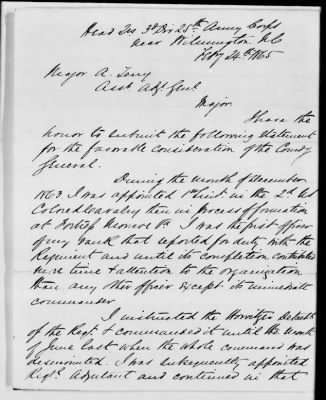 Head Qrs 3d Div 25th Army Corps
near Wilmington N.C
Feby 24th 1865
Major A. Terry
Asst Adjt Genl
Major
I have the
honor to submit the following statement
for the favorable consideration of the Comdg
General.
During the month of December
1863 I was appointed 1st Lieut. in the 2d US
Colored Cavalry then in process of formation
at Fortress Monroe Va. I was the first officer
of my rank that reported for duty with the
Regiment and until its completion contributed
more time & attention to the organization
than any other officer except its immediate
commander.
I instructed the Howitzer Detacht
of the Regt & commanded it until the month
of June last when the whole command was
dismounted. I was subsequently appointed
Regtl Adjutant and continued in that